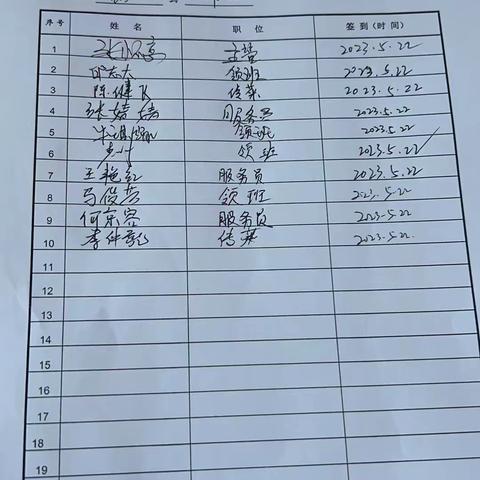 序号 姓名 职位 签到(时间)
1 主管 2023.5.22
2 邝志大 领班 2023.5.22
3 陈健飞 传菜 2023.5.22
4 张婧婧 服务员 2023.5.22
5 领班 2023.5.22
6 领班 2023.5.22
7 王艳红 服务员 2023.5.22
8 马俊芬 领班 2023.5.22
9 何东容 服务员 2023.5.22
10 李仲彪 传菜 2023.5.22
11
12
13
14
15
16
17
18
19